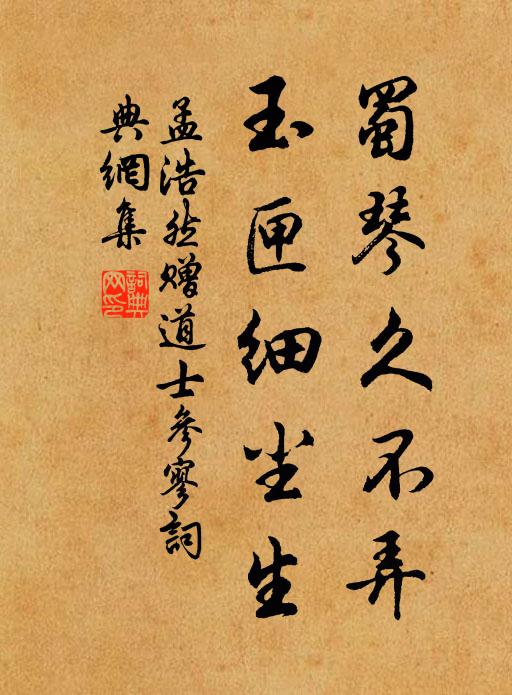 蜀琴久不弄
玉匣细尘生
孟浩然赠道士參寥詞
典網集
詞典
网印